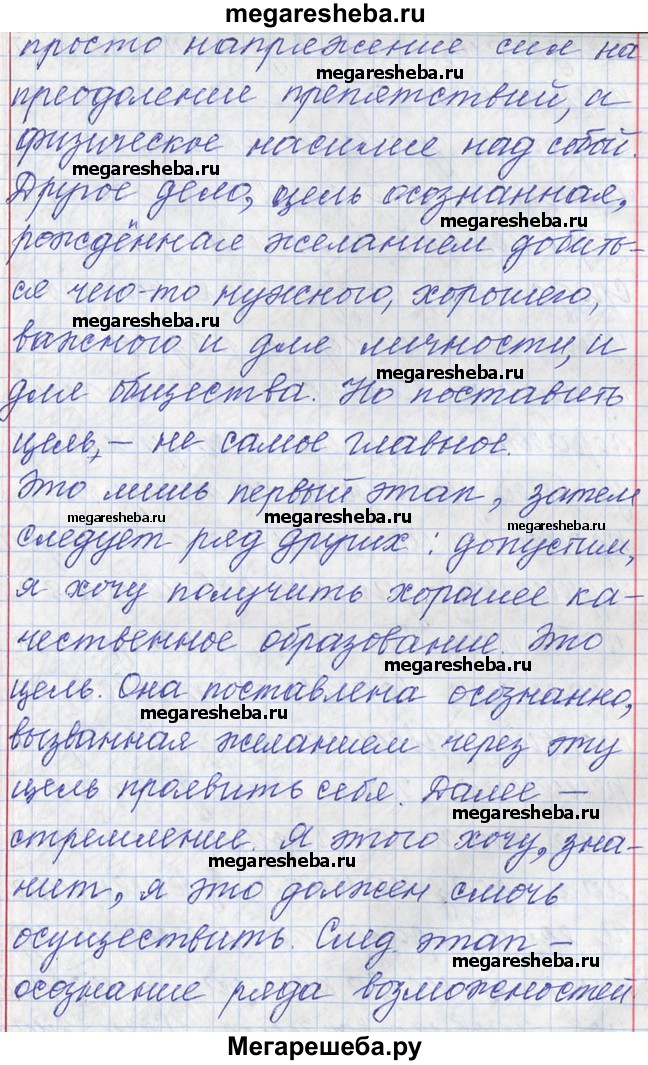 megaresheba.ru
просто напряжение сил на
megaresheba.ru
преодоление препятствий, а
физическое насилие над собой.
megaresheba.ru
Другое дело, цель осознанная,
megaresheba.ru
рождённая желанием добить-
ся чего-то нужного, хорошего,
megaresheba.ru
важного и для личности, и
megaresheba.ru
для общества. Но поставить
цель, – не самое главное.
Это лишь первый этап, затем
megaresheba.ru megaresheba.ru megaresheba.ru
следует ряд других: допустим,
я хочу получить хорошее ка-
чественное образование. Это
megaresheba.ru
цель. Она поставлена осознанно,
megaresheba.ru
вызванная желанием через эту
цель проявить себя. Далее –
megaresheba.ru
стремление. Я этого хочу, зна-
megaresheba.ru
чит, я это должен смочь
осуществить. След. этап –
megaresheba.ru
осознание ряда возможностей.
Мегарешеба.ру